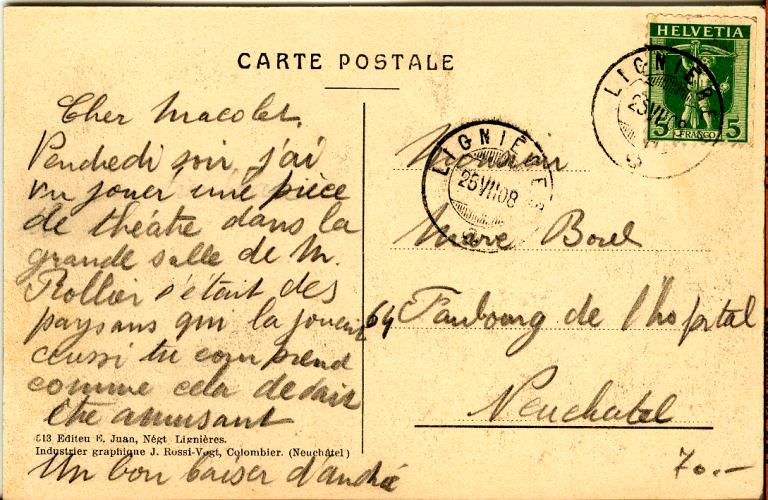 CARTE POSTALE
HELVETIA
5 FRANCO 5
LIGNIÈRES
25 VII 08
LIGNIÈRES
25 VII 08
Cher Macolet,
Vendredi soir, j'ai
vu jouer une pièce
de théâtre dans la
grande salle de M.
Rollier s'était des
paysans qui la jouait
aussi tu comprend
comme cela devait
être amusant
Un bon baiser d'andré
Monsieur
Marc Borel
64 Faubourg de l'hopital
Neuchatel
513 Editeu E. Juan, Négt Lignières.
Industrier graphique J. Rossi-Vogt, Colombier. (Neuchâtel)
70.-